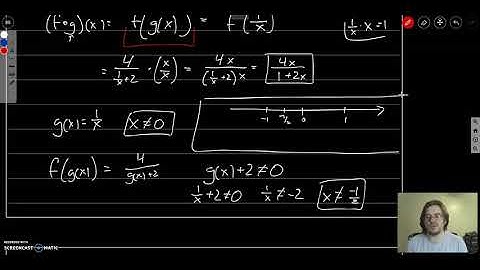 (f∘g)(x) = f(g(x)) = f(1/x)
1/x · x = 1
= 4/(1/x+2) · (x/x) = 4x/((1/x+2)x) = 4x/(1+2x)
g(x) = 1/x x ≠ 0
-1 -1/2 0 1
f(g(x)) = 4/(g(x)+2) g(x)+2 ≠ 0
1/x + 2 ≠ 0 1/x ≠ -2 x ≠ -1/2
RECORDED WITH
SCREENCAST-O-MATIC